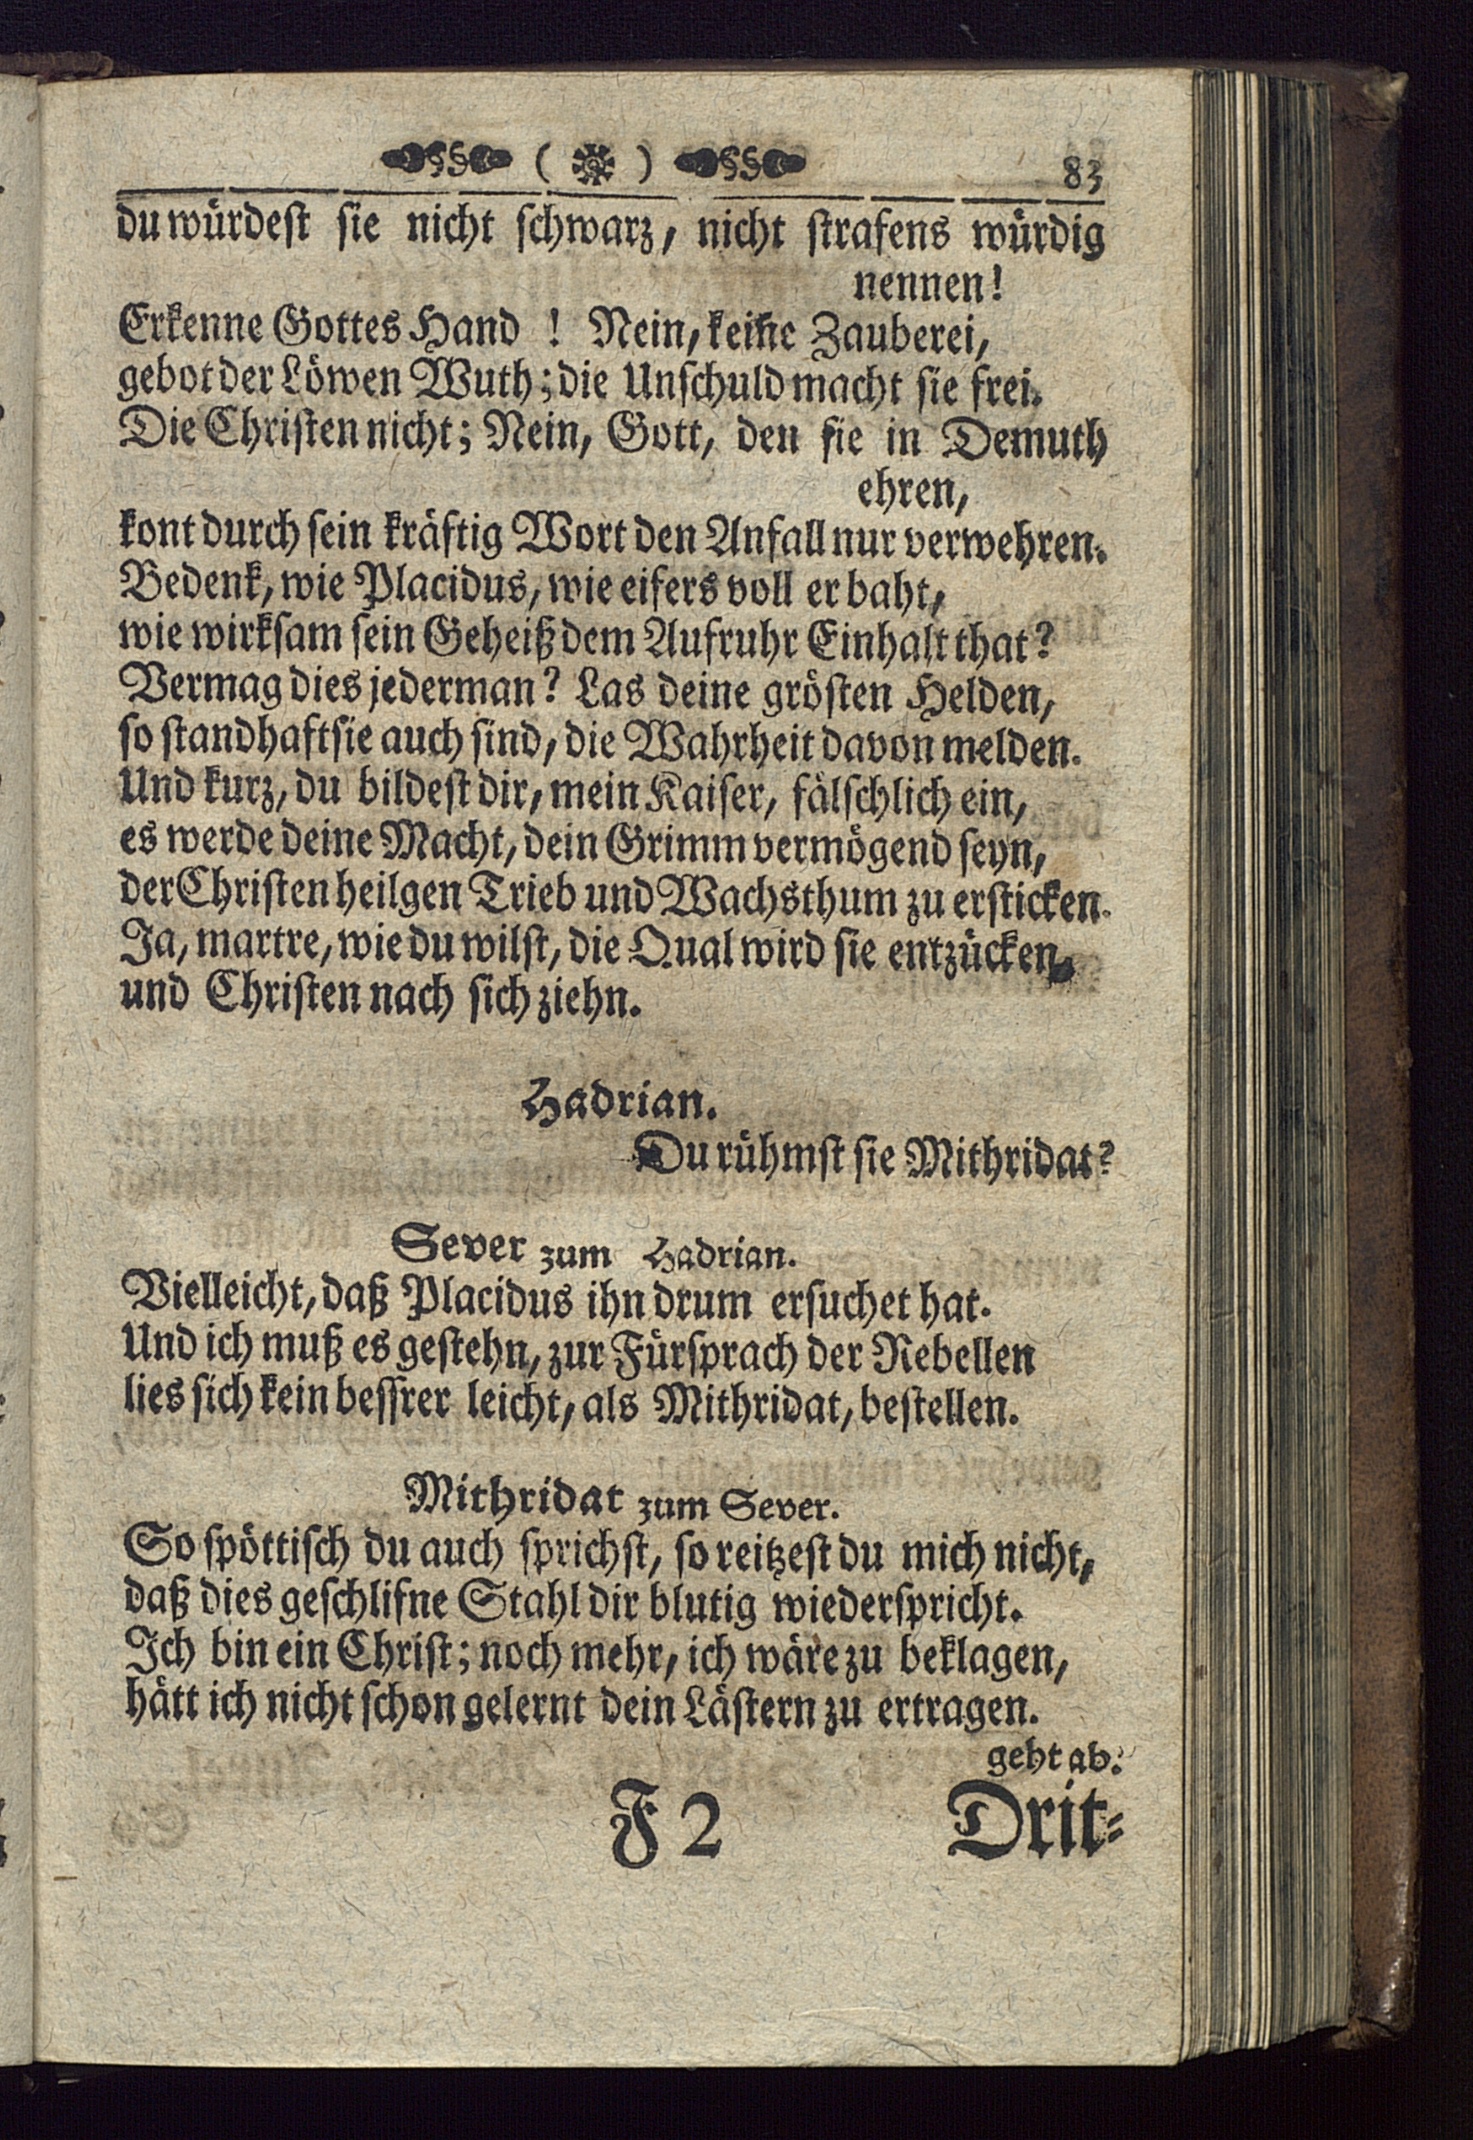 §§ ( ) §§ 83
du würdest sie nicht schwarz, nicht strafens würdig
nennen!
Erkenne Gottes Hand ! Nein, keine Zauberei,
gebot der Löwen Wuth; die Unschuld macht sie frei.
Die Christen nicht; Nein, Gott, den sie in Demuth
ehren,
kont durch sein kräftig Wort den Anfall nur verwehren.
Bedenk, wie Placidus, wie eifers voll er baht,
wie wirksam sein Geheiß dem Aufruhr Einhalt that?
Vermag dies jederman? Las deine grösten Helden,
so standhaft sie auch sind, die Wahrheit davon melden.
Und kurz, du bildest dir, mein Kaiser, fälschlich ein,
es werde deine Macht, dein Grimm vermögend seyn,
der Christen heilgen Trieb und Wachsthum zu ersticken.
Ja, martre, wie du wilst, die Qual wird sie entzücken,
und Christen nach sich ziehn.
Hadrian.
Du rühmst sie Mithridat?
Sever zum Hadrian.
Vielleicht, daß Placidus ihn drum ersuchet hat.
Und ich muß es gestehn, zur Fürsprach der Rebellen
lies sich kein bessrer leicht, als Mithridat, bestellen.
Mithridat zum Sever.
So spöttisch du auch sprichst, so reitzest du mich nicht,
daß dies geschlifne Stahl dir blutig wiederspricht.
Ich bin ein Christ; noch mehr, ich wäre zu beklagen,
hätt ich nicht schon gelernt dein Lästern zu ertragen.
geht ab.
F 2 Drit-